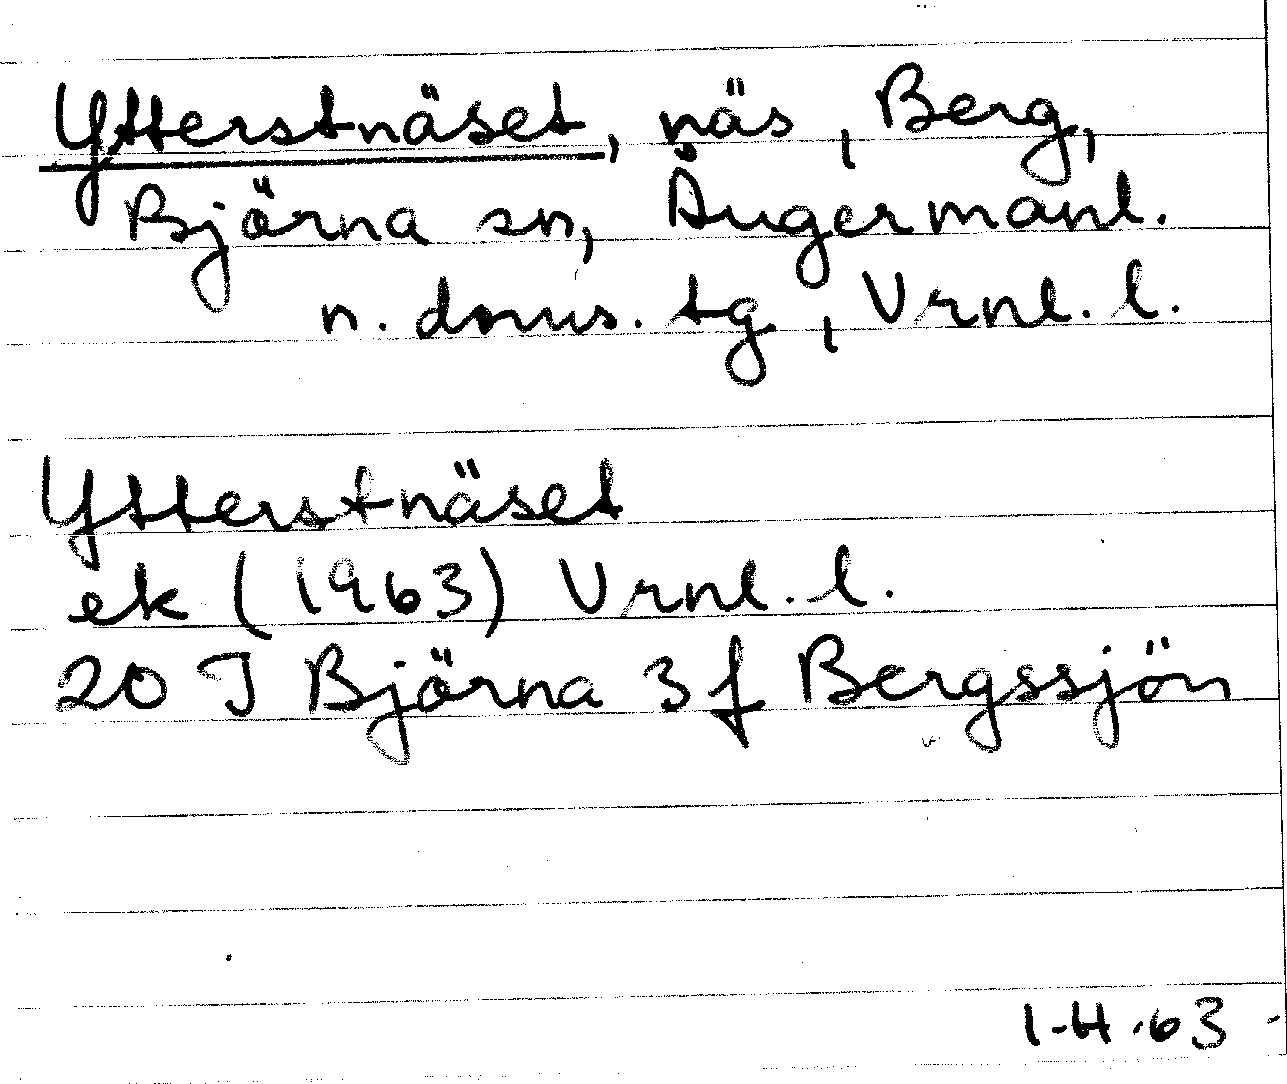 Ytterstnäset, näs, Berg,
Björna sn, Ångermanl.
n. doms. tg, Vrnl. l.
Ytterstnäset
ek (1963) Vrnl. l.
20 J Björna 3 f Bergssjön
I-H.63